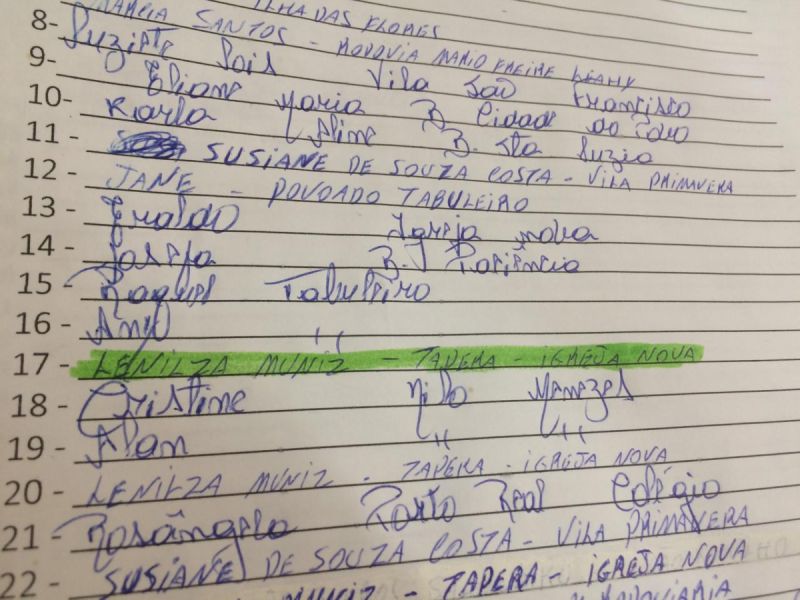 ILHA DAS FLORES
8- MARCIA SANTOS - RODOVIA MARIO FREIRE LEAHY
9- Suziete Vila São Francisco
10- Eliane Maria B. Cidade do Povo
11 Karla Aline B. Sta Luzia
12- SUSIANE DE SOUZA COSTA - VILA PRIMAVERA
13- JANE - POVOADO TABULEIRO
14- Eraldo Igreja nova
15- Josefa B. J Paciência
16- Raquel Tabuleiro
17- Ana "
LENILZA MUNIZ - TAPERA - IGREJA NOVA
18- Cristine Nilo Menezes
19- Alan " "
20- LENILZA MUNIZ - TAPERA - IGREJA NOVA
21- Rosângela Porto Real Colégio
22- SUSIANE DE SOUZA COSTA - VILA PRIMAVERA
MUNIZ - TAPERA - IGREJA NOVA